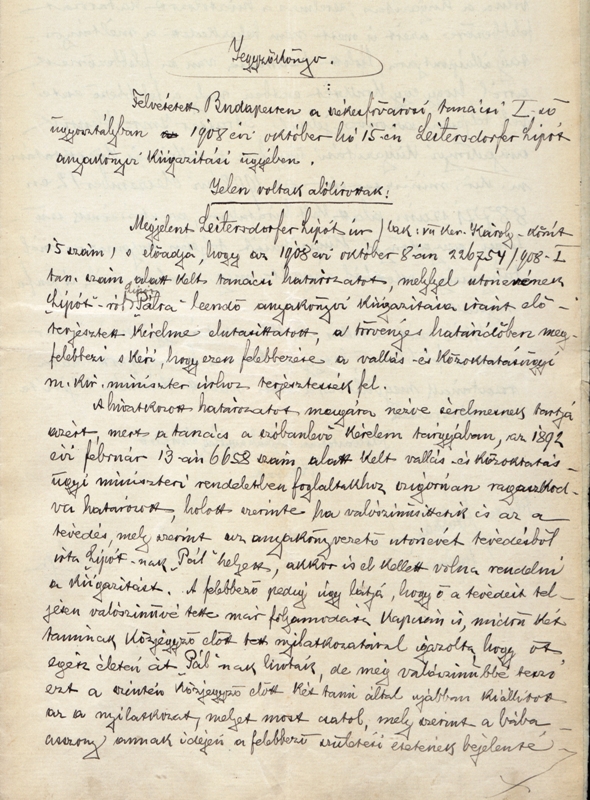 Jegyzőkönyv.
Felvétetett Budapesten a székesfővárosi tanácsi I-ső
ügyosztályban 1908 évi október hó 15-én Leitersdorfer Lipót
anyakönyvi kiigazítási ügyében.
Jelen voltak alólírottak:
Megjelent Leitersdorfer Lipót úr /lak: VII ker. Károly-körút
15 szám/ s előadja, hogy az 1908 évi október 8-án 226754/908-I
tan. szám alatt kelt tanácsi határozatot, melylyel utónevének
"Lipót"-ról "Pálra" leendő anyakönyvi kiigazítása iránt elő-
terjesztett kérelme elutasíttatott, a törvényes határidőben meg-
felebbezi s kéri, hogy ezen felebbezése a vallás-és közoktatásügyi
m. kir. miniszter úrhoz terjesztessék fel.
A hivatkozott határozatot magára nézve sérelmesnek tartja
azért, mert a tanács a szóbanlevő kérelem tárgyában, az 1892
évi február 13-án 6658 szám alatt kelt vallás-és közoktatás-
ügyi miniszteri rendeletben foglaltakhoz szigorúan ragaszkod-
va határozott, holott szerinte ha valószínűsíttetik is az a
tévedés, mely szerint az anyakönyvvezető utónevét tévedésből
írta Lipót-nak "Pál" helyett, akkor is el kellett volna rendelni
a kiigazítást. A felebbező pedig úgy látja, hogy ő a tévedést tel-
jesen valószínűvé tette már folyamodása kapcsán is, midőn két
tanúnak közjegyző előtt tett nyilatkozatával igazolta, hogy őt
egész életén át "Pál"nak hívták, de még valószínűbbé teszi
ezt a szintén közjegyző előtt két tanú által ujabban kiállított
az a nyilatkozat, melyet most csatol, mely szerint a bába
asszony annak idején a felebbező születési esetének bejelenté-